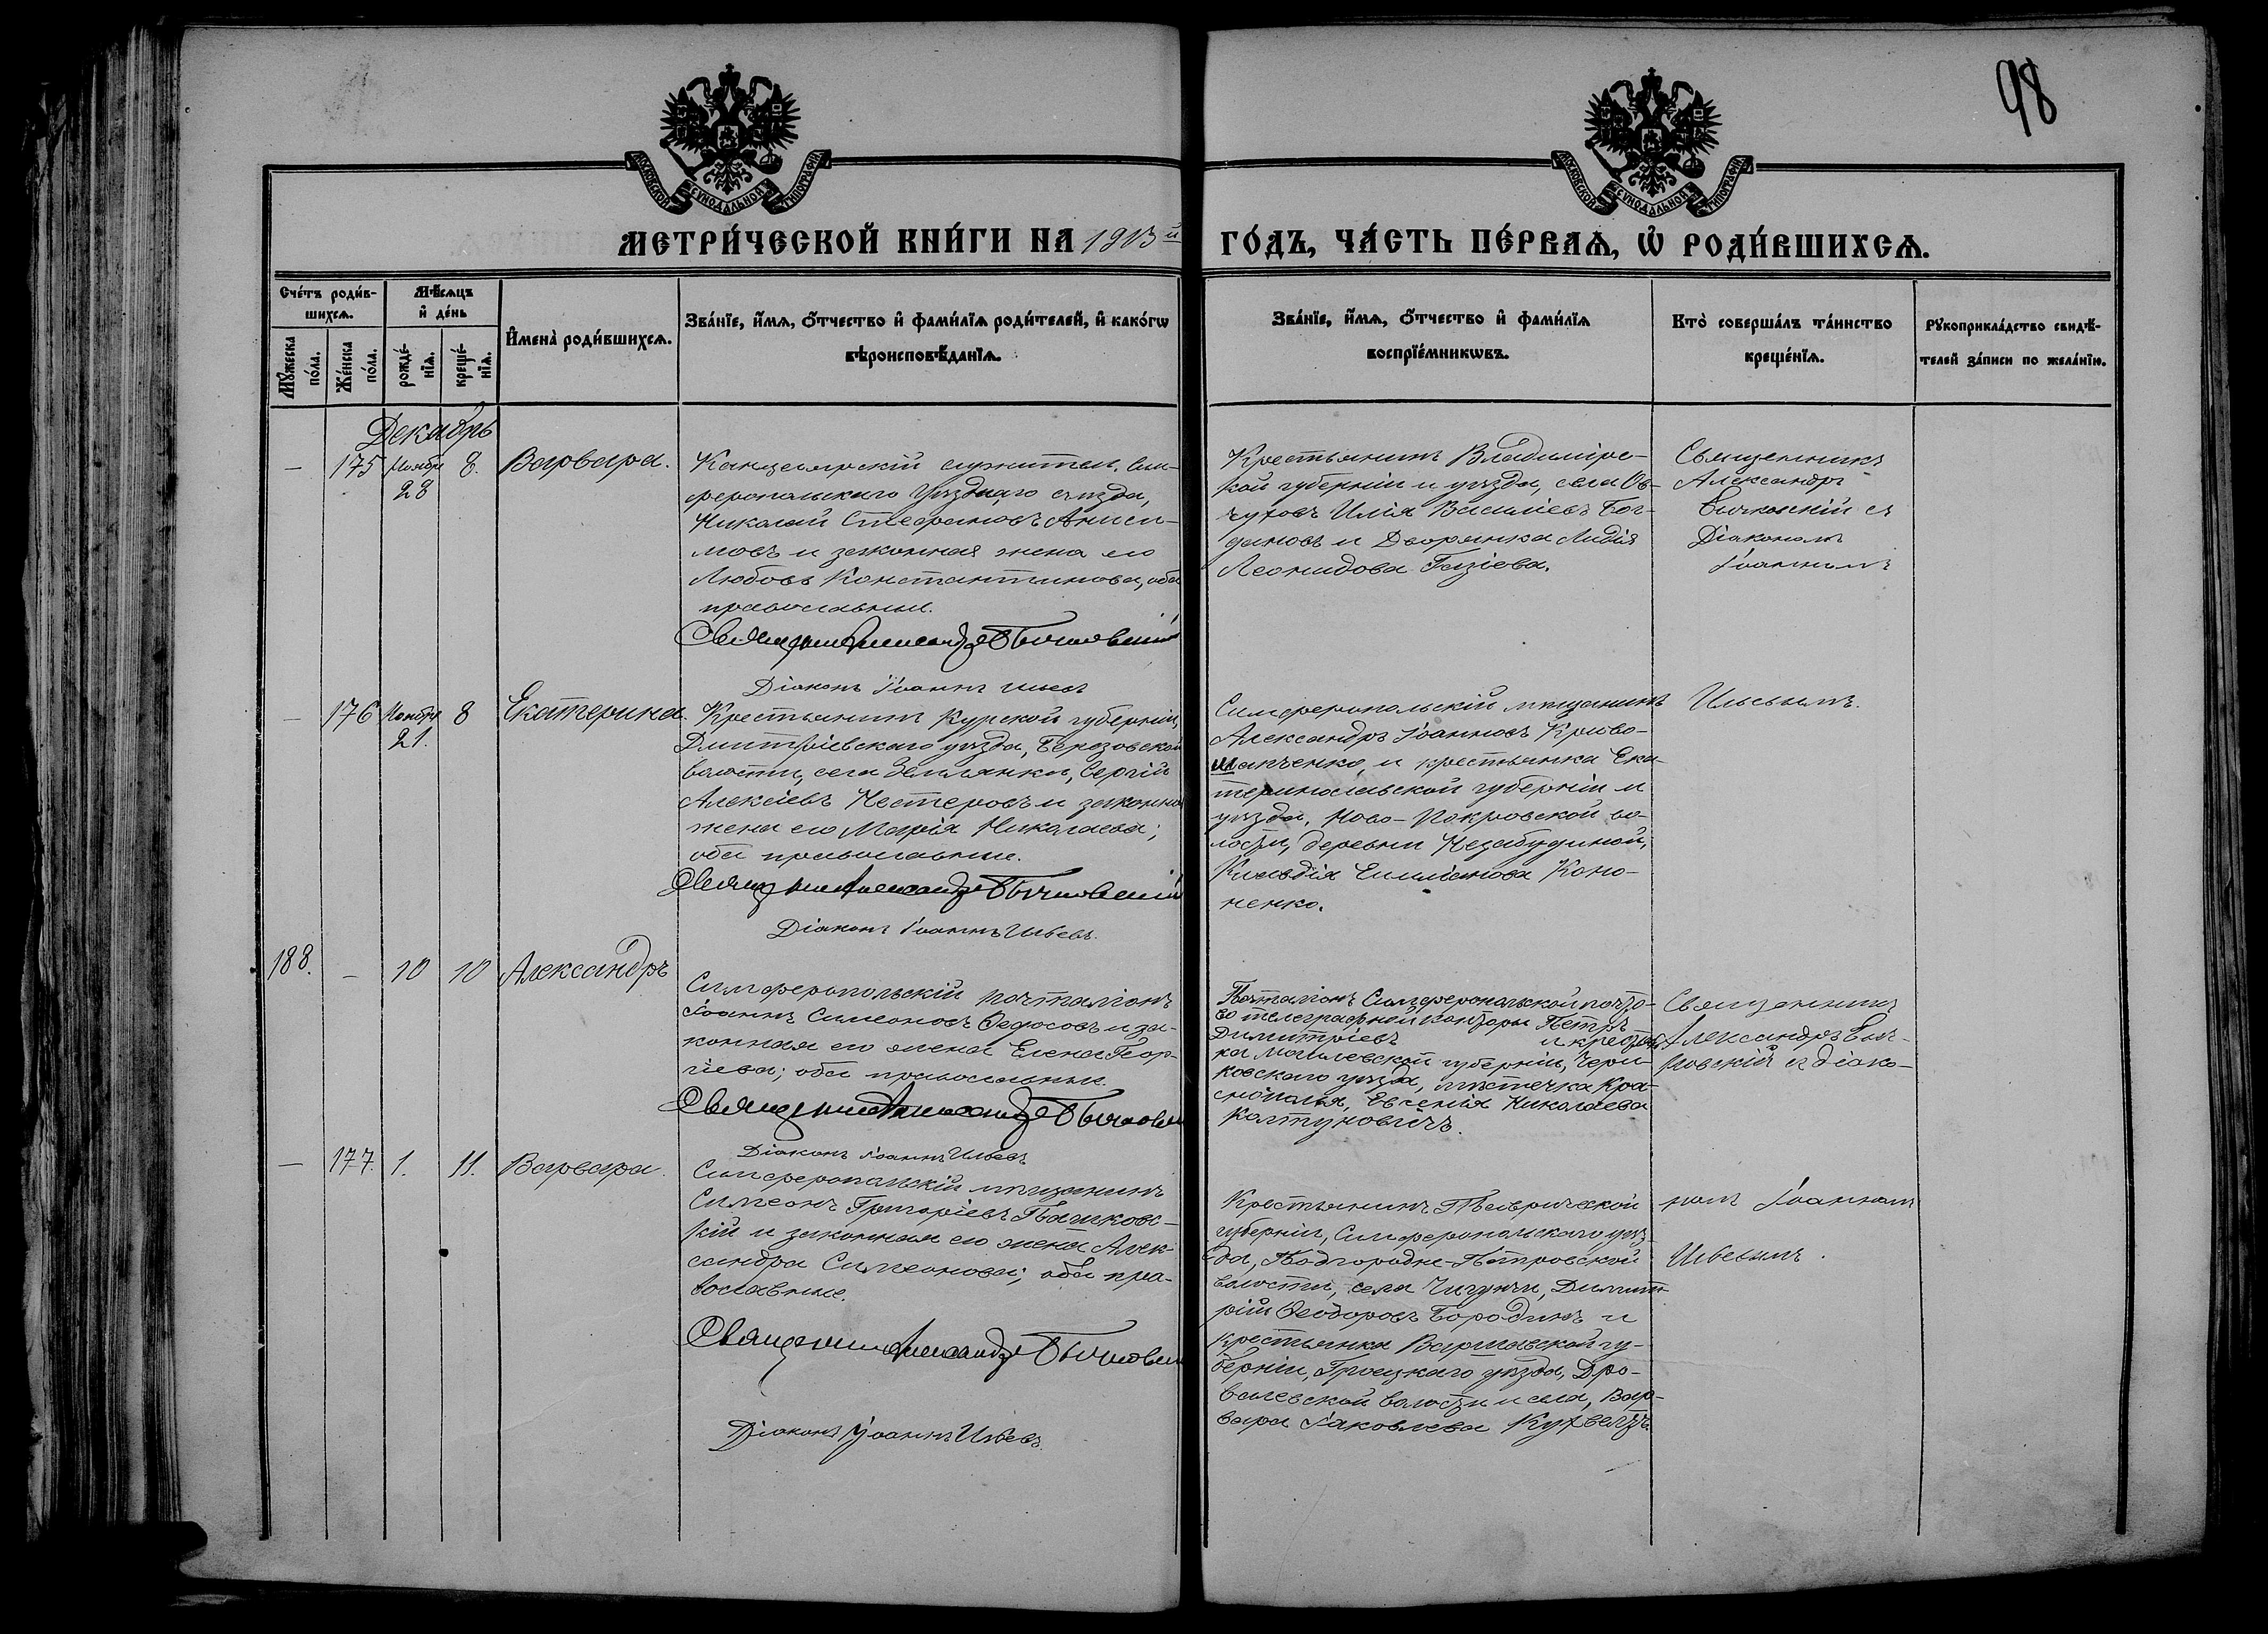 98
МОСКОВСКОЙ СѴНОДАЛЬНОЙ ТИПОГРАФІИ
МОСКОВСКОЙ СѴНОДАЛЬНОЙ ТИПОГРАФІИ
МЕТРИ́ЧЕСКОЙ КНИ́ГИ НА 1903й ГО́ДЪ, ЧА́СТЬ ПЕ́РВАѦ, Ѡ҆ РОДИ́ВШИХСѦ.
Сче́тъ роди́в-
шихсѧ.
Мꙋ́жеска по́ла.
Же́нска по́ла.
Мѣ́сѧцъ
и҆ де́нь
рожде́-
нїѧ.
креще́-
нїѧ.
И҆мена̀ роди́вшихсѧ.
Зва́нїе, и҆́мѧ, ѻ҆́тчество и҆ фами́лїѧ роди́телей, и҆ како́гѡ
вѣроисповѣ́данїѧ.
Зва́нїе, и҆́мѧ, ѻ҆́тчество и҆ фами́лїѧ
воспрїе́мникѡвъ.
Кто̀ соверша́лъ та́инство
креще́нїѧ.
Рꙋкоприкла́дство свидѣ́-
телей за́писи по жела́нїю.
Декабрь
— 175 Ноября 28 8. Варвара.
Канцелярскій служитель Сим-
феропольскаго Уѣзднаго съѣзда,
Николай Стефановъ Аниси-
мовъ и законная жена его
Любовь Константинова, оба
православные.
Священникъ Александръ Бычковскій
Діаконъ Іоаннъ Ильевъ
Крестьянинъ Владимірс-
кой губерніи и уѣзда, села Ов-
чуховъ Илія Василіевъ Бог-
дановъ и Дворянка Лидія
Леонидова Газіева.
Священникъ
Александръ
Бычковскій съ
Діакономъ
Іоанномъ
— 176 Ноября 21. 8 Екатерина.
Крестьянинъ Курской губерніи,
Дмитріевскаго уѣзда, Березовской
волости, села Землянки, Сергій
Алексіевъ Нестеровъ и законная
жена его Марія Николаева;
оба православные.
Священникъ Александръ Бычковскій
Діаконъ Іоаннъ Ильевъ.
Симферопольскій мѣщанинъ
Александръ Іоанновъ Криво-
шапченко, и крестьянка Ека-
теринославской губерніи и
уѣзда, Ново-Покровской во-
лости, деревни Незабудиной,
Клавдія Емиліанова Коно-
ненко.
Ильевымъ.
188. — 10 10 Александръ
Симферопольскій почталіонъ
Іоаннъ Симеоновъ Федосовъ и за-
конная его жена Елена Геор-
гіева; оба православные.
Священникъ Александръ Бычковскій
Діаконъ Іоаннъ Ильевъ
Почталіонъ Симферопольской почто-
во телеграфной конторы Петръ
Димитріевъ и крестьян-
ка Могилевской губерніи, Чери-
ковскаго уѣзда, мѣстечка Кра-
снополья, Евгенія Николаева
Колтуновичъ.
Священникъ
Александръ Быч-
ковскій съ діако-
— 177. 1. 11. Варвара.
Симферопольскій мѣщанинъ
Симеонъ Григоріевъ Пашковс-
кій и законная его жена Алек-
сандра Симеонова; оба пра-
вославные.
Священникъ Александръ Бычковскій
Діаконъ Іоаннъ Ильевъ.
Крестьянинъ Таврической
губерніи, Симферопольскаго уѣз-
да, Подгородне-Петровской
волости, села Чигунчи, Димит-
рій Ѳеодоровъ Бородинъ и
крестьянка Варшавской гу-
берніи, Гроецкаго уѣзда, Дро-
валевской волости и села, Вар-
вара Іаковлева Кухвалдъ.
номъ Іоанномъ
Ильевымъ.